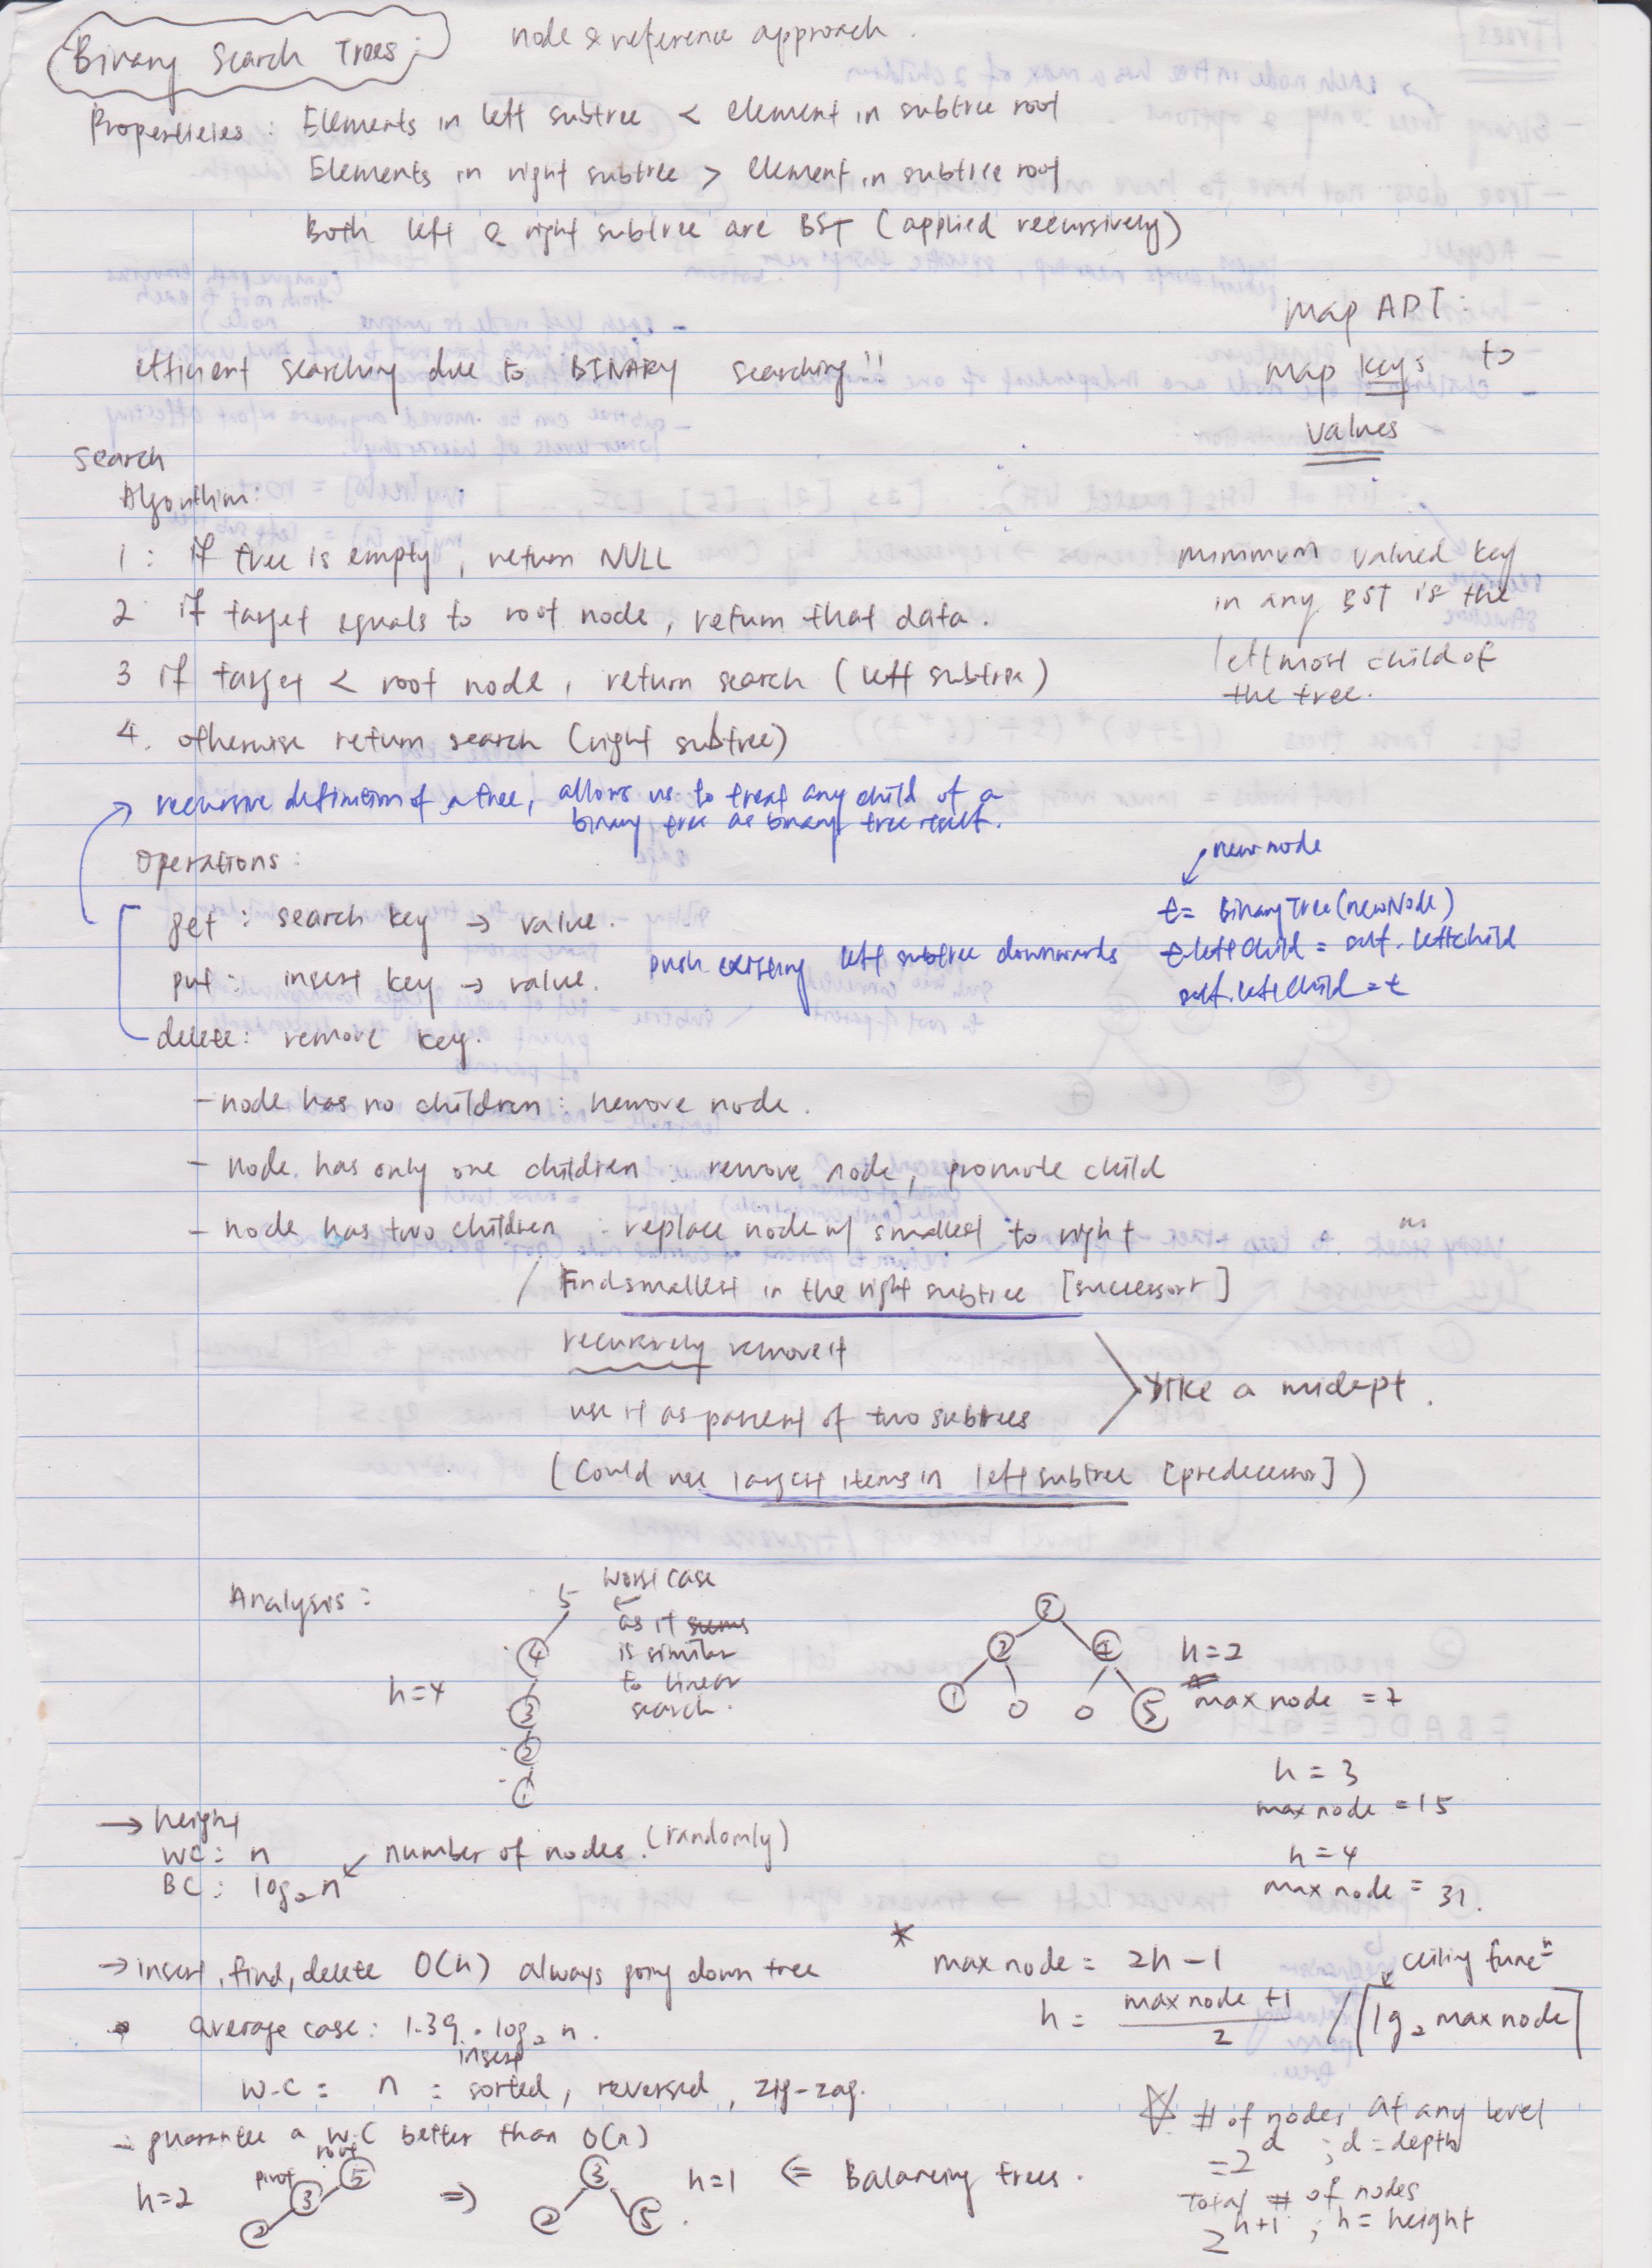 Binary Search Trees: node & reference approach.
Properties: Elements in left subtree < element in subtree root
Elements in right subtree > element in subtree root
Both left & right subtree are BST (applied recursively)
Map ADT:
map keys to
values
efficient searching due to BINARY searching!!
Search
Algorithm:
1: if tree is empty, return NULL
2 if target equals to root node, return that data.
3 if target < root node, return search (left subtree)
4. otherwise return search (right subtree)
minimum valued key
in any BST is the
leftmost child of
the tree.
recursive definition of a tree, allows us to treat any child of a
binary tree as binary tree itself.
Operations:
get: search key → value.
put: insert key → value.
delete: remove key.
new node
push existing left subtree downwards
t = BinaryTree(newNode)
t.leftChild = self.leftchild
self.leftChild = t
- node has no children: remove node.
- node has only one children: remove node, promote child
- node has two children: replace node w/ smallest to right
Find smallest in the right subtree [successor]
recursively remove it
use it as parent of two subtrees
like a midpt.
(Could use largest items in left subtree [predecessor])
Analysis:
5
4
3
2
1
h=4
worst case
as it seems
is similar
to linear
search.
3
2 4
1 0 0 5
h=2
max node = 7
h = 3
max node = 15
h = 4
max node = 31.
→ height
WC: n
BC: log₂n ↙ number of nodes. (randomly)
→ insert, find, delete O(h) always going down tree
average case: 1.39 · log₂ n.
insert
W.C = n = sorted, reversed, zig-zag.
* max node = 2h - 1
h = max node + 1 / 2 / ⌈lg₂ max node⌉
ceiling funcⁿ
- guarantee a W.C better than O(n)
h=2
pivot
root
5
3
2
⇒
3
2 5.
h=1 ⇐ Balancing trees.
☆ # of nodes at any level
= 2^d ; d = depth
Total # of nodes
2^h+1 ; h = height